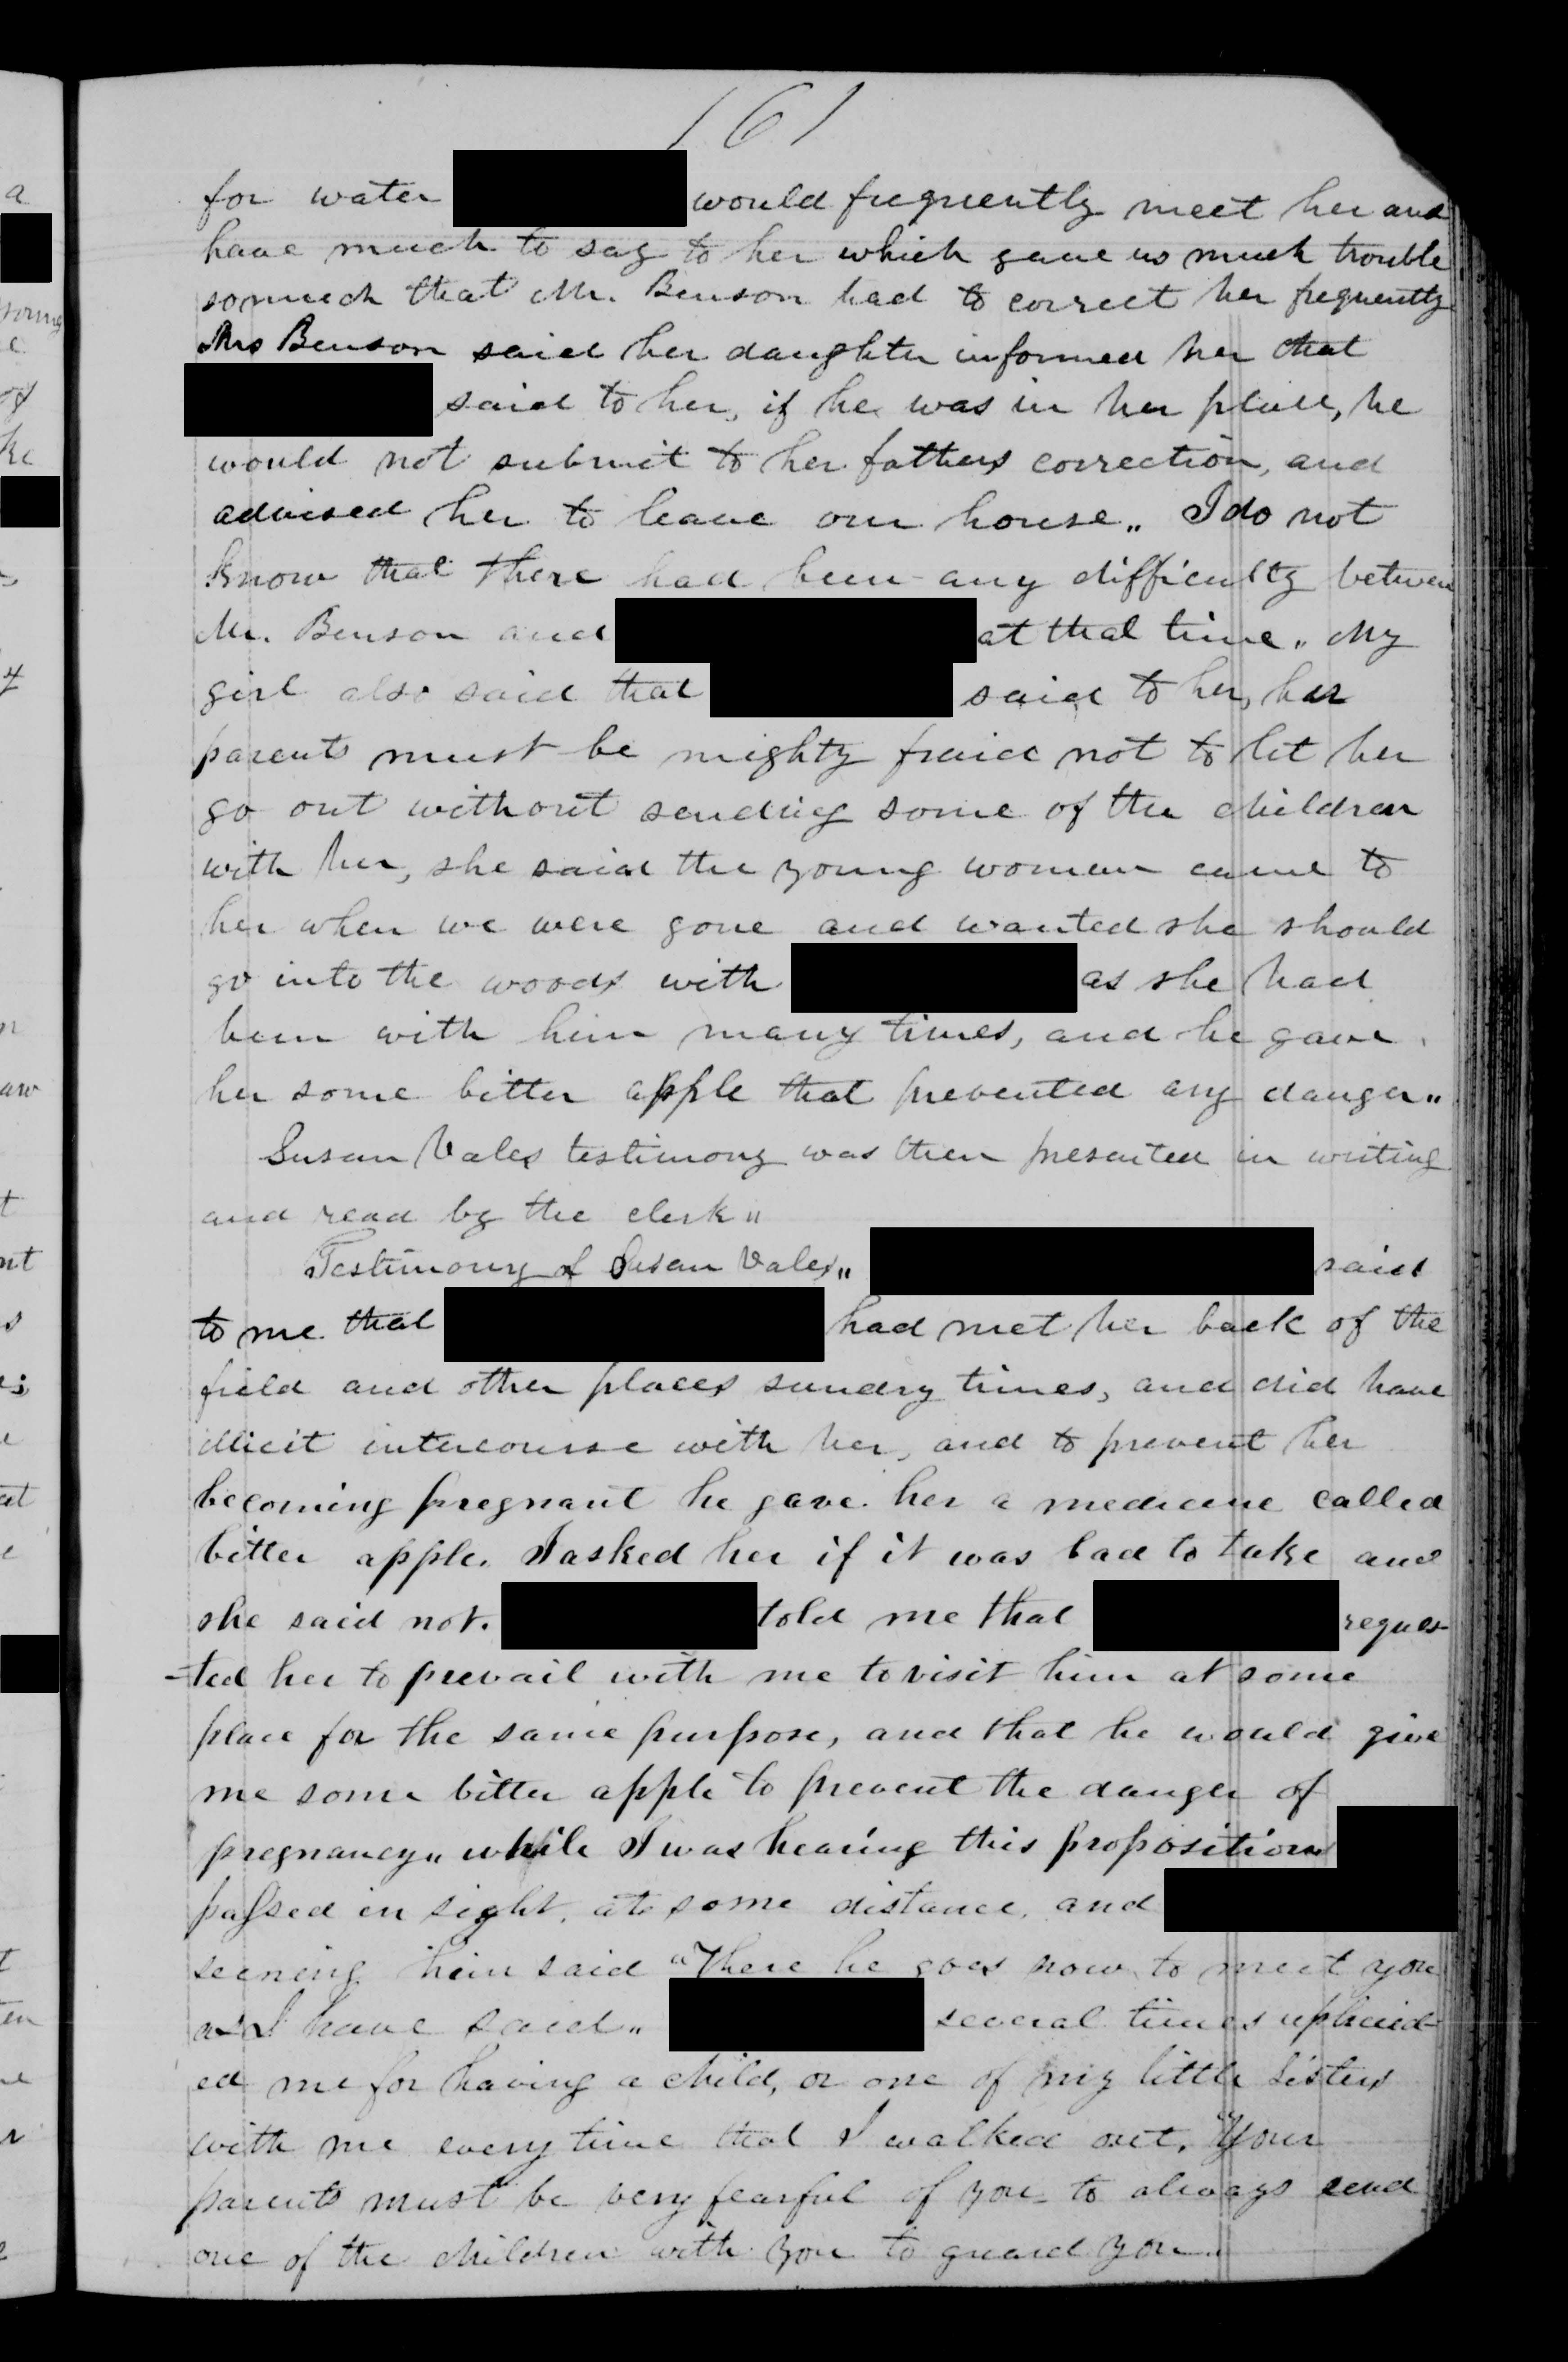 161
for water would frequently meet her and
have much to say to her which gave us much trouble
so much that Mr. Benson had to correct her frequently
Mrs Benson said her daughter informed her that
said to her, if he was in her place, he
would not submit to her fathers correction, and
advised her to leave our house„ I do not
know that there had been any difficulty between
Mr. Benson and at that time„ My
girl also said that said to her, her
parents must be mighty fraid not to let her
go out without sending some of the children
with her, she said the young woman came to
her when we were gone and wanted she should
go into the woods with as she had
been with him many times, and he gave
her some bitter apple that prevented any danger„
Susan Vales testimony was then presented in writing
and read by the clerk„
Testimony of Susan Vales„ said
to me that had met her back of the
field and other places sundry times, and did have
illicit intercourse with her, and to prevent her
becoming pregnant he gave her a medicine called
bitter apple. I asked her if it was bad to take and
she said not. told me that reques-
-ted her to prevail with me to visit him at some
place for the same purpose, and that he would give
me some bitter apple to prevent the danger of
pregnancy„ while I was hearing this proposition
passed in sight, at some distance, and
seeneing him said "There he goes now to meet you
as I have said„ several times upbraid-
ed me for having a child, or one of my little sisters
with me every time that I walked out. "Your
parents must be very fearful of you to always send
one of the children with you to guard you„